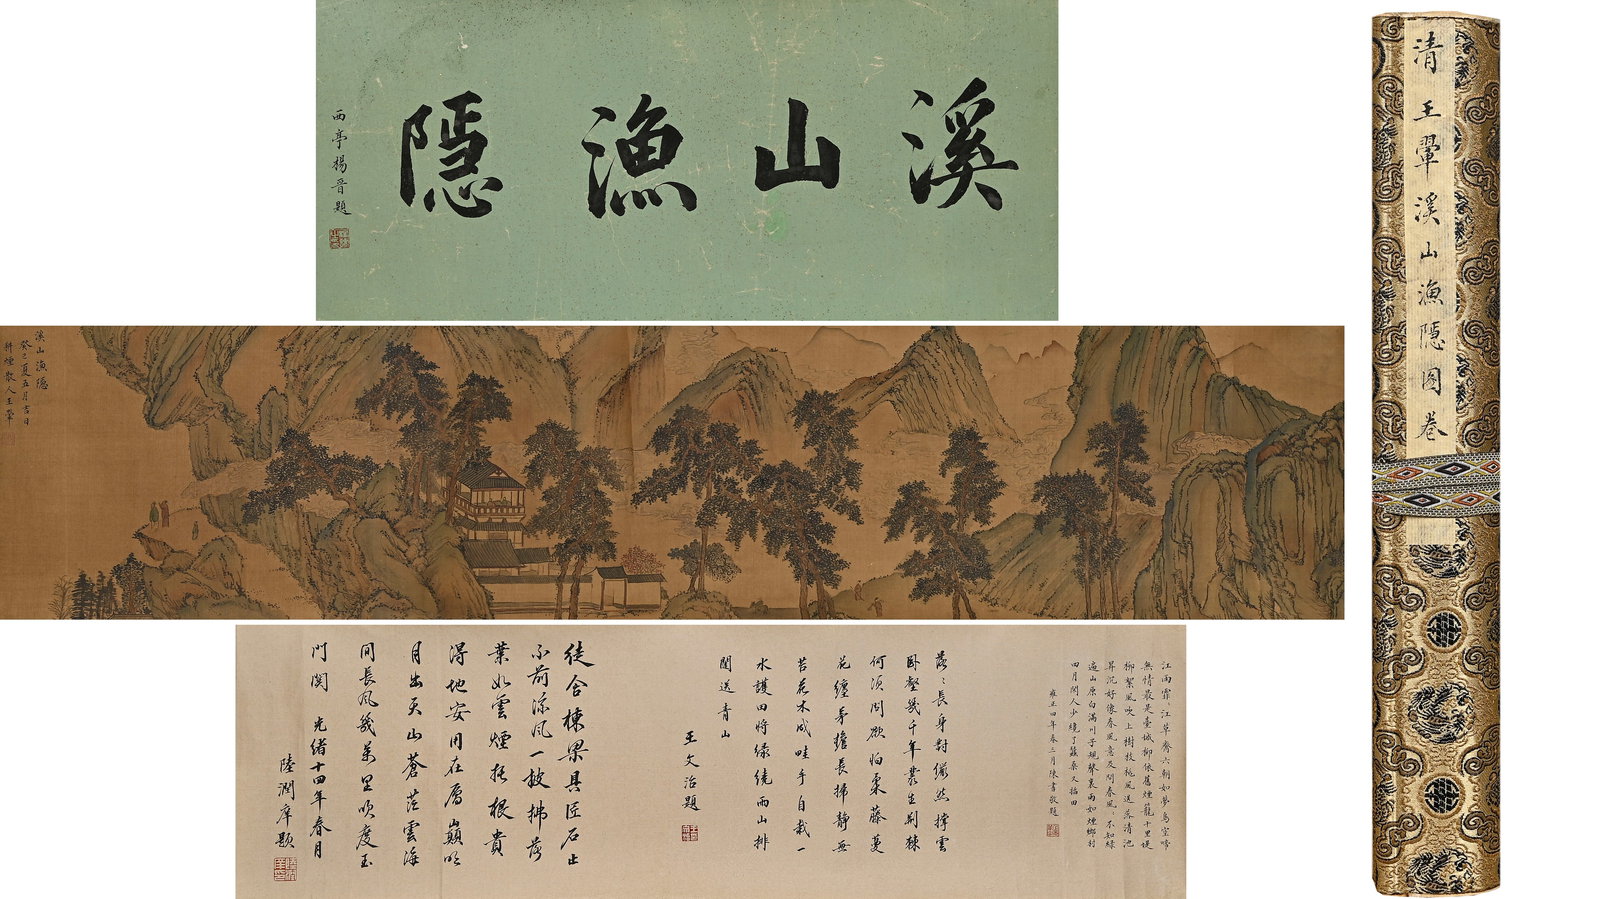 溪山漁隱
西亭楊晉題
溪山漁隱
癸巳夏五月吉日
耕煙散人王翬
江雨霏〻江草齊六朝如夢鳥空啼
無情最是臺城柳依舊煙籠十里堤
柳絮風吹上樹枝桃風送落清池
昇沉好像春風意及問春風〻不知綠
遍山原白滿川子規聲裏雨如煙鄉村
四月閒人少纔了蠶桑又插田
雍正四年春三月陳書敬題
落〻長身對儼然撐雲
卧壑幾千年叢生荆棘
何須問欲怕柔藤蔓
花纏茅檐長掃靜無
苔花木成畦手自栽一
水護田將綠繞兩山排
闥送青山
王文治題
徒合棟梁具匠石止
不前涼風一披拂落
葉如雲煙托根貴
得地安用在巔明
月出天山蒼茫雲海
間長風幾萬里吹度玉
門關 光緒十四年春月
陸潤庠題
清 王翬溪山漁隱圖卷